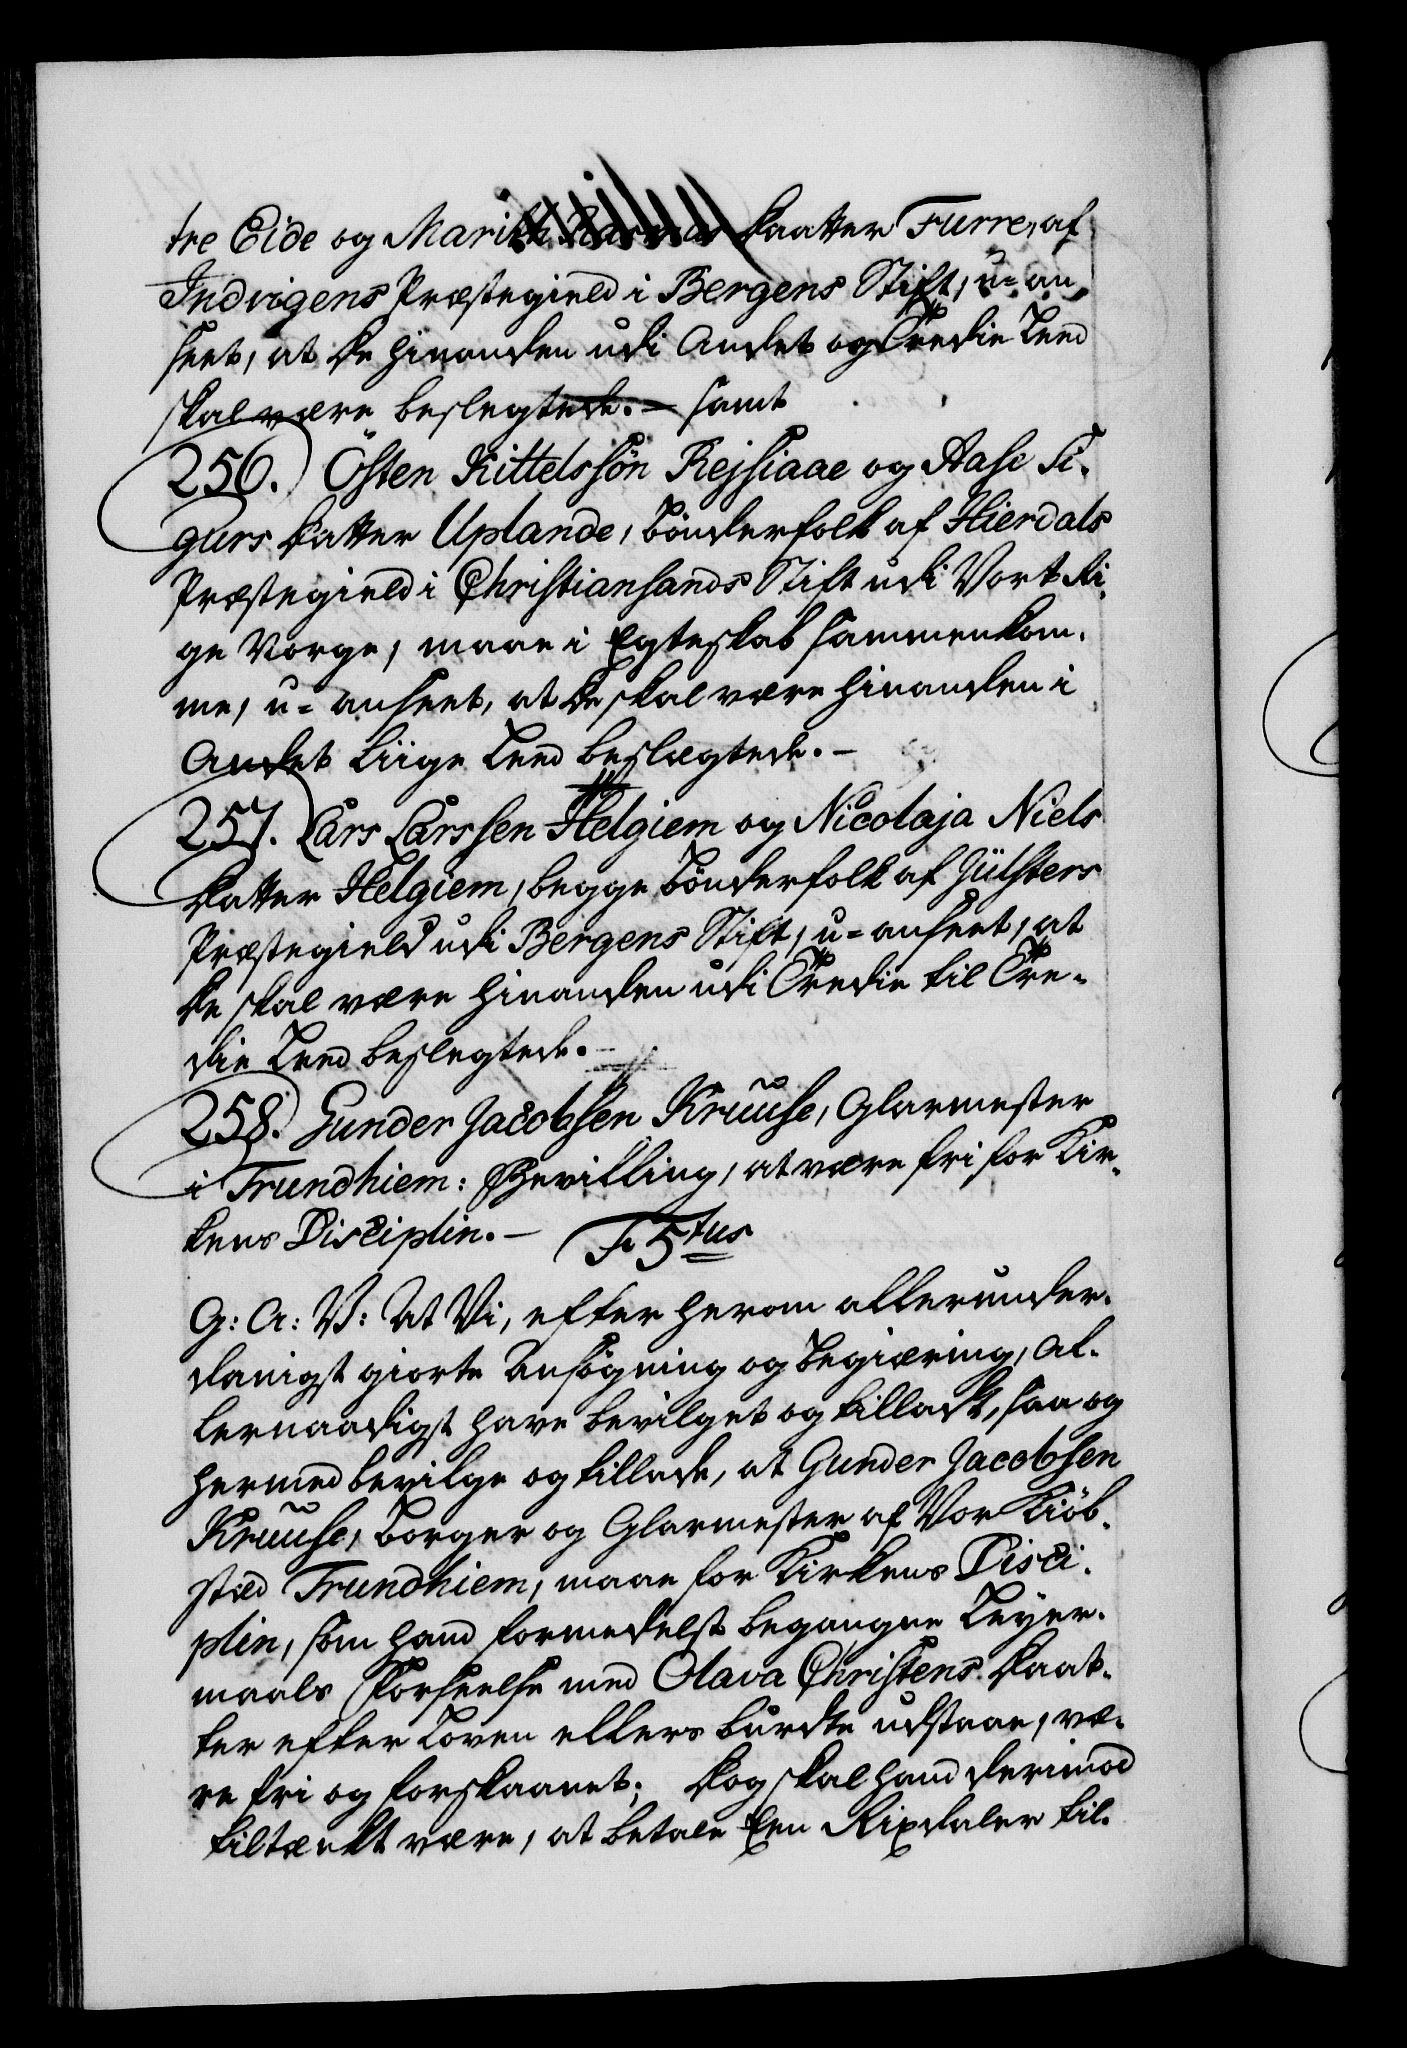 tre Eide og Marithe Rasmus Daatter Furre, af
Indvigens Præstegield i Bergens Stift, u-an
seet, at de hinanden udi Andet og Tredie Leed
skal være beslegtede. - samt
256. Østen Kittelssøn Rejsiaae og Aase Si-
gurs Datter Uplande, Bønderfolk af Hierdals
Præstegield i Christiansands Stift udi Vort Ri-
ge Norge, maae i Egteskab sammenkom-
me, u-anseet, at de skal være hinanden i
Andet Liige Leed beslægtede. -
257. Lars Larssen Helgiem og Nicolaja Niels
Datter Helgiem, begge Bønderfolk af Jülsters
Præstegield udi Bergens Stift, u-anseet, at
de skal være hinanden udi Tredie til Tre-
die Leed beslegtede. -
258. Gunder Jacobsen Kruuse, Glarmester
i Trundhiem: Bevilling, at være fri for Kir-
kens Disciplin. - F. 5tus
G: A: V: At Vi, efter herom allerunder-
danigst giorte Ansøgning og Begiæring, Al-
lernaadigst have bevilget og tilladt, saa og
hermed bevilge og tillade, at Gunder Jacobsen
Kruuse, Borger og Glarmester af Vor Kiøb-
stæd Trundhiem, maae for Kirkens Disci-
plin, som hand formedelst begangne Leyer-
maals Forseelse med Olava Christens Daat-
ter efter Loven ellers burdte udstaae, væ-
re fri og forskaanet; Dog skal hand derimod
tiltænkt være, at betale Een Rixdaler til